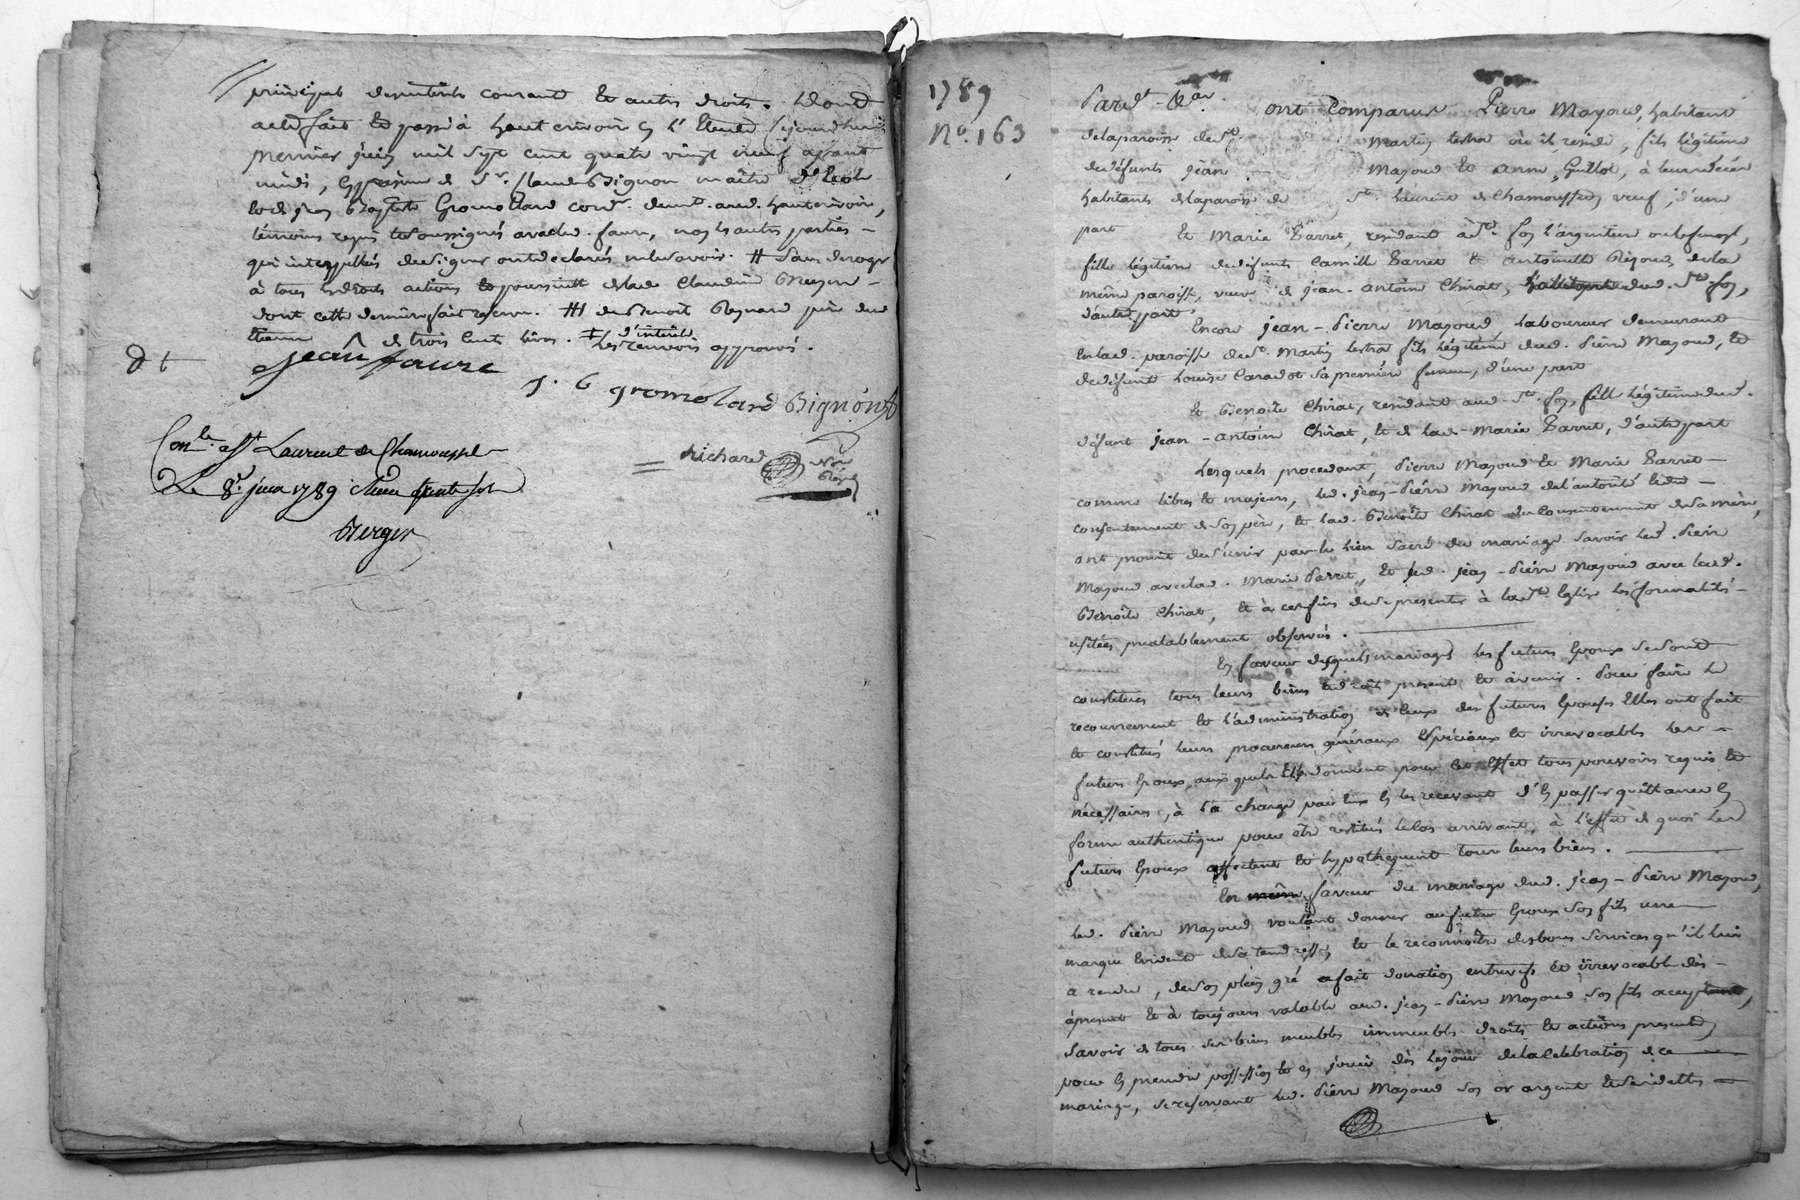 principal des intérêts courant et autres droits. Dont
acte fait et passé à haut rivoire en l'Etude cejourdhui
premier juin mil sept cent quatre vingt neuf avant
midi, en présence de Sr. Claude Bignon maître d'Ecole
et de jean Baptiste Gromollard cordr. demt. aud. hautrivoire,
témoins requis et soussignés avec led. faure, non les autres parties
qui interpellées de signer ont déclarés ne le savoir. # Sans déroger
à tous les droits actions et poursuitte de lade Claudine
dont cette derniere fait reserve. ## de Benoit père dud
Etienne ‡ de trois cent livres. d'intérêts
les renvois approuvés.
jean faure
J. B gromolard Bignon
Conlé. à St Laurent de Chamousset
Le 8. juin 1789
Berger
richard
Nore
Royal
1789
No. 163
Pardt. &ar ont Comparus Pierre Mayoud, habitant
de la paroisse de St. Martin lestra où il reside, fils légitime
de défunts jean Mayoud et anne Guillot, à leur décès
habitants de la paroisse de St. Laurent de Chamousset, veuf, d'une
part Et Marie Parret, residant à Ste. foy l'argentiere
fille légitime de défunts Camille Parret et antoinette de la
même paroisse, veuve de jean-antoine Chirat, dud. Ste foy,
d'autre part
Encore jean-Pierre Mayoud, laboureur demeurant
en lad. paroisse de St. Martin lestra fils légitime dud. Pierre Mayoud, et
de défunte Louise sa première femme, d'une part
Et Benoîte Chirat, residant aud. Ste. foy, fille légitime dud.
défunt jean-antoine Chirat, et de lad. Marie Parret, d'autre part
Lesquels procedant, Pierre Mayoud et Marie Parret
comme libres et majeurs, led. jean-Pierre Mayoud de l'autorité et du
consentement de son père, et lad. Benoîte Chirat du Consentement de sa mère,
ont promit de s'unir par le lien sacré du mariage savoir led. Pierre
Mayoud avec lad. Marie Parret, et led. jean-Pierre Mayoud avec lad.
Benoîte Chirat, et à ces fins de se presenter à la ste. Eglise les formalités
usitées prealablement observées.
En faveur desquels mariages les futurs Epoux se sont
constitués tous leurs biens et droits present et avenir. Pour faire le
recouvrement et l'administration de ceux des futures Epouses Elles ont fait
et constitués leurs procureurs généraux spéciaux et irrevocables les
futurs Epoux, auxquels Elles donnent pour cet effet tous pouvoirs requis et
nécessaires, à la charge par Eux en les recevant d'En passer quittance en
forme authentique pour être restitués le cas arrivant, à l'effet de quoi les
futurs Epoux affectent et hypothequent tous leurs biens.
En même faveur du mariage dud. jean-Pierre Mayoud,
led. Pierre Mayoud voulant donner au futur Epoux son fils une
marque Evidente de sa tendresse, et le reconnoître des bons services qu'il lui
a rendu, de son plein gré a fait donation entrevifs et irrevocable dès
àpresent et à toujours valable aud. jean-Pierre Mayoud son fils acceptant,
savoir de tous ses biens meubles immeubles droits et actions presents,
pour En prendre possession et en jouir dès le jour de la celebration de ce
mariage, se reservant led. Pierre Mayoud son or argent et ses dettes